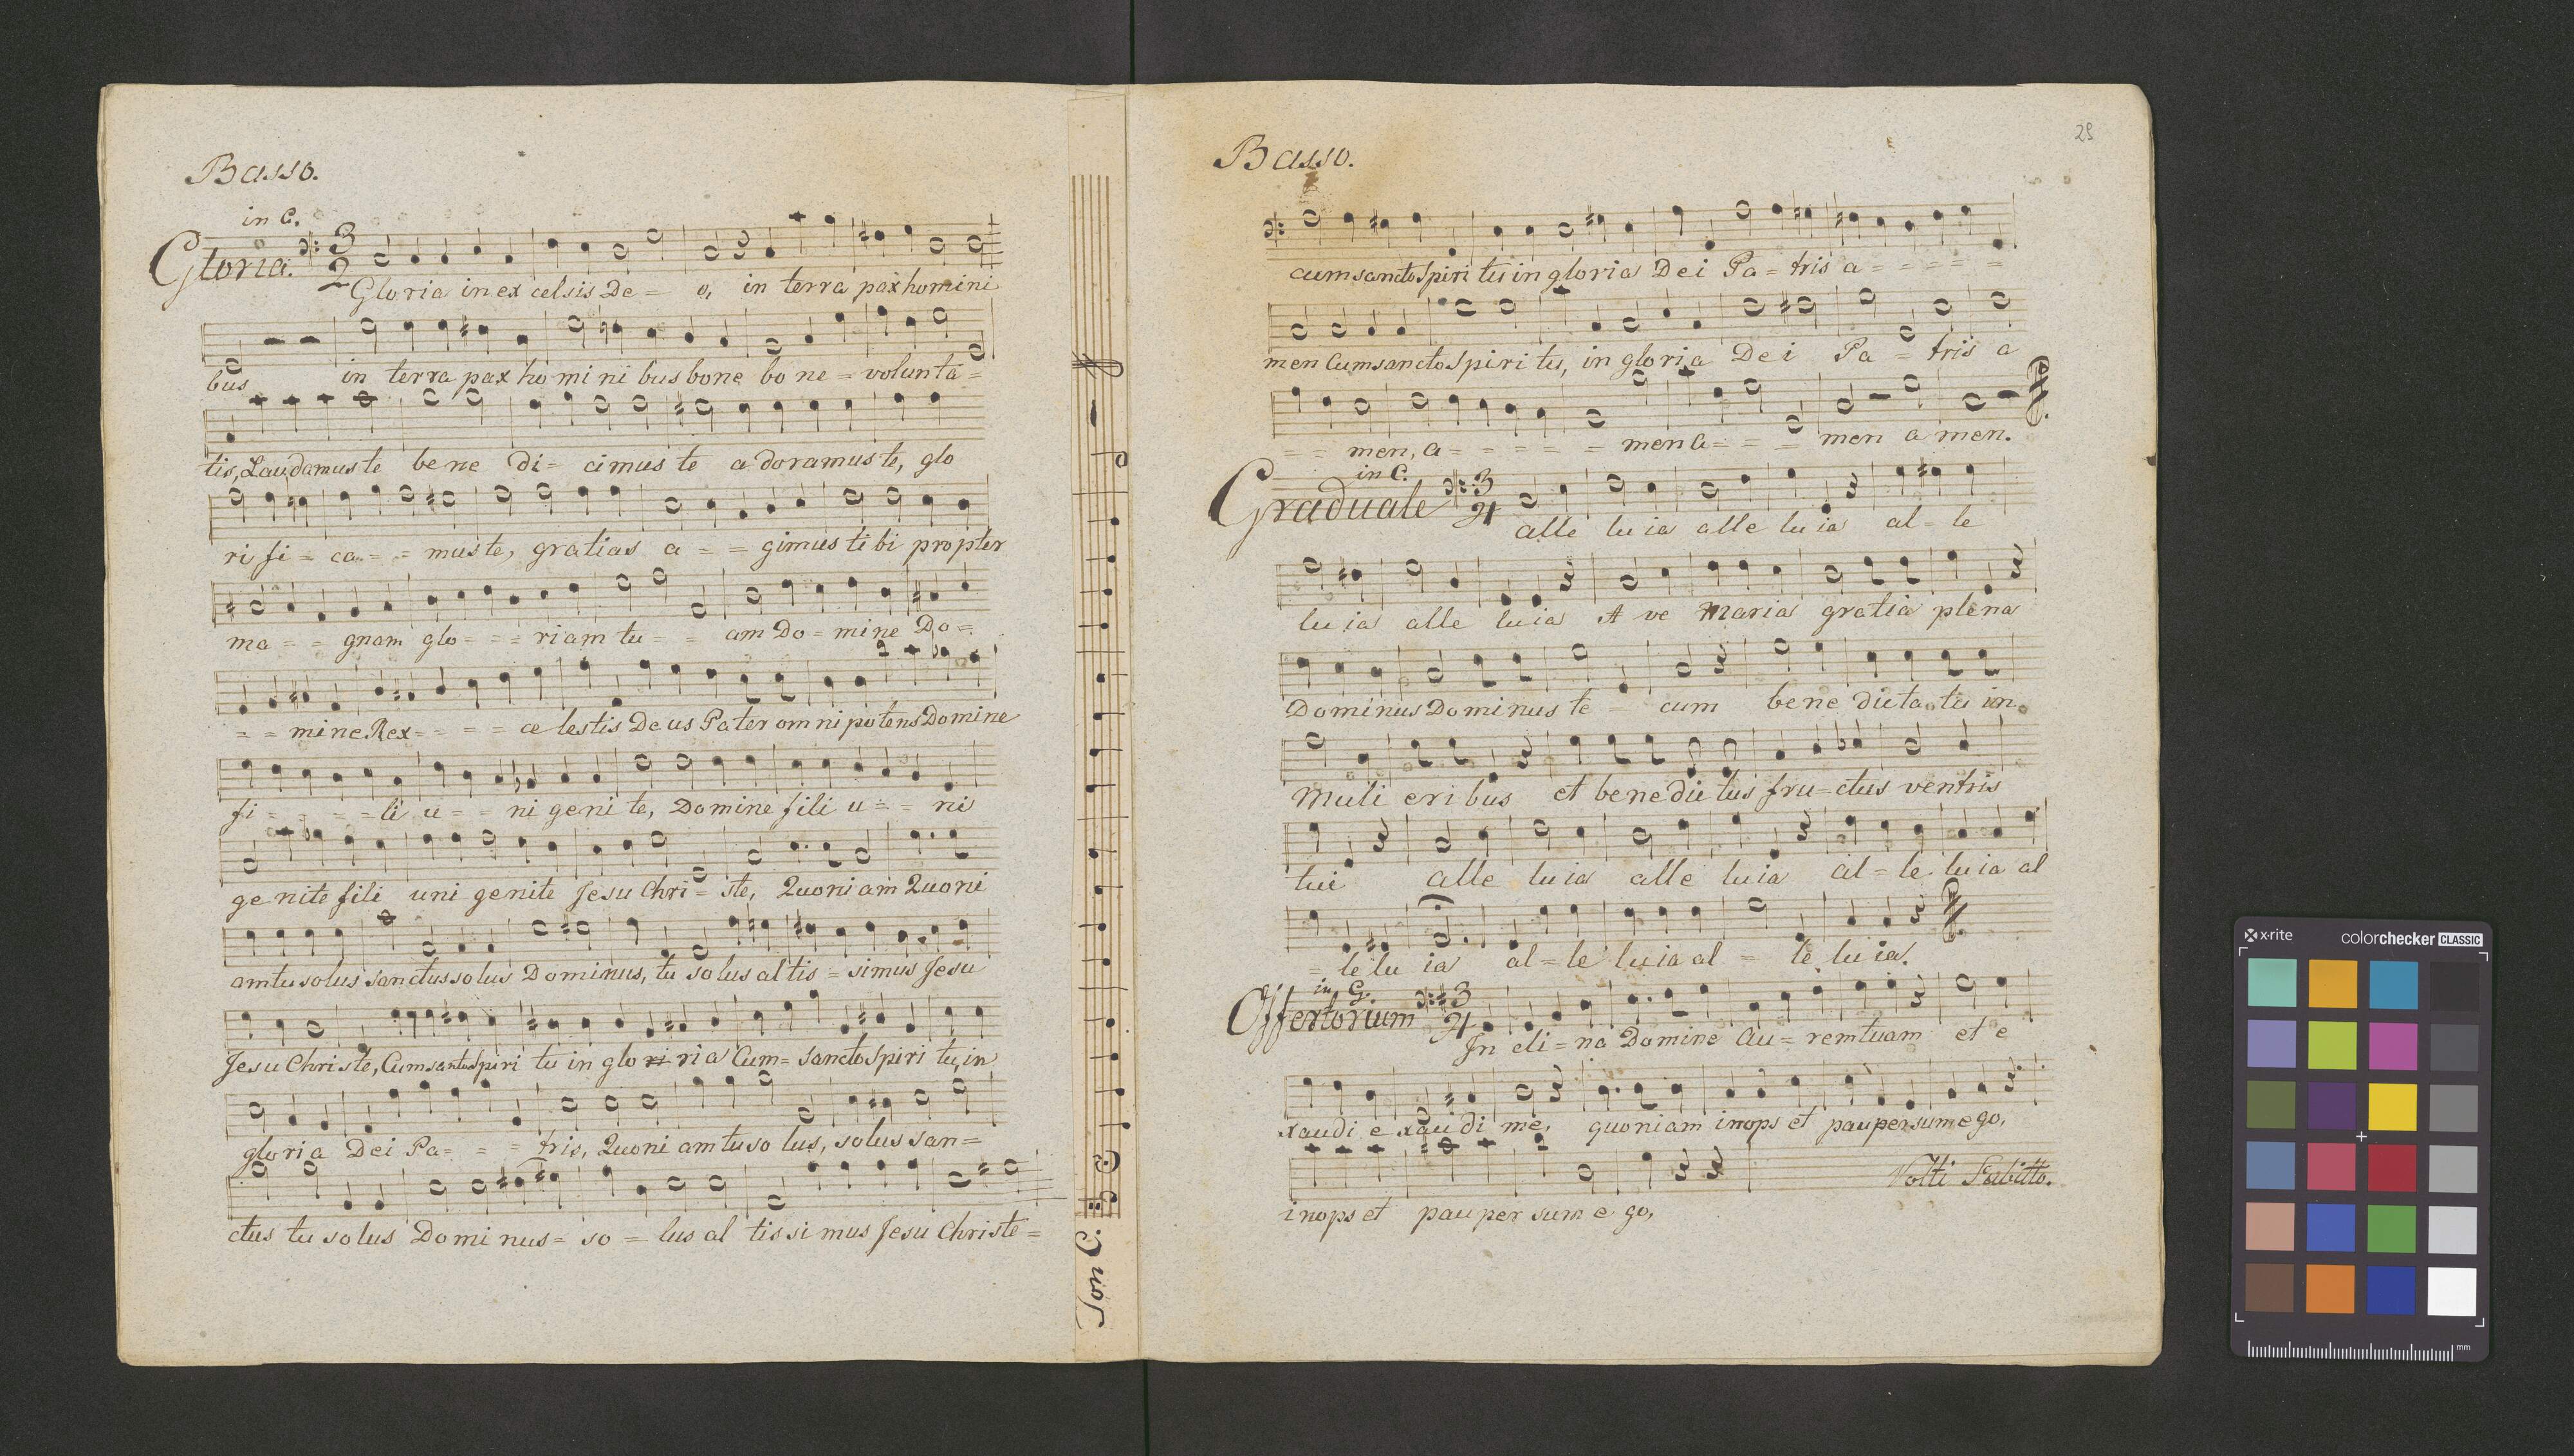 Basso.
in C.
Gloria.
3
2
Gloria in ex celsis De = o, in terra pax homini
bus in terra pax ho mi ni bus bone bo ne = volunta =
tis, Laudamus te be ne di = cimus te a doramus te, glo
ri fi = ca = = mus te, gratias a = = gimus ti bi propter
ma = = gnam glo = = = riam tu = = am Do = mine Do =
= = mine Rex = = = = ce lestis De us Pater om ni potens Domine
fi = = = = li u = = ni geni te, Domine fili u = = ni
ge nite fili uni genite Jesu Chri = ste, Quoni am Quoni
am tu solus sanctus solus Dominus, tu solus al tis = simus Jesu
Jesu Christe, Cum sancto Spiri tu in glo ri ria Cum = sancto Spiri tu, in
gloria Dei Pa = = = tris, Quoni am tu so lus, solus san =
ctus tu solus Domi nus = so = lus al tissi mus Jesu Christe =
Basso.
29
cum sancto Spiri tu in gloria Dei Pa = tris a = = = = =
men Cum sancto Spiri tu, in gloria Dei Pa = tris a
= = men, a = = = = = men a = = men a men.
in C.
Graduale
3
4
alle lu ia alle lu ia al = le
lu ia alle luia A ve Maria gratia plena
Dominus Dominus te = cum bene dicta tu in
muli eribus et benedictus fru = ctus ventris
tui alle luia alle luia al = le luia al
= le lu ia al = le luia al = le luia.
in G.
Offertorium
3
4
In cli = na Domine Au = rem tuam et e
xaudi e xau di me, quoniam inops et pauper sum ego,
inops et pauper sum e go,
Volti Subitto.